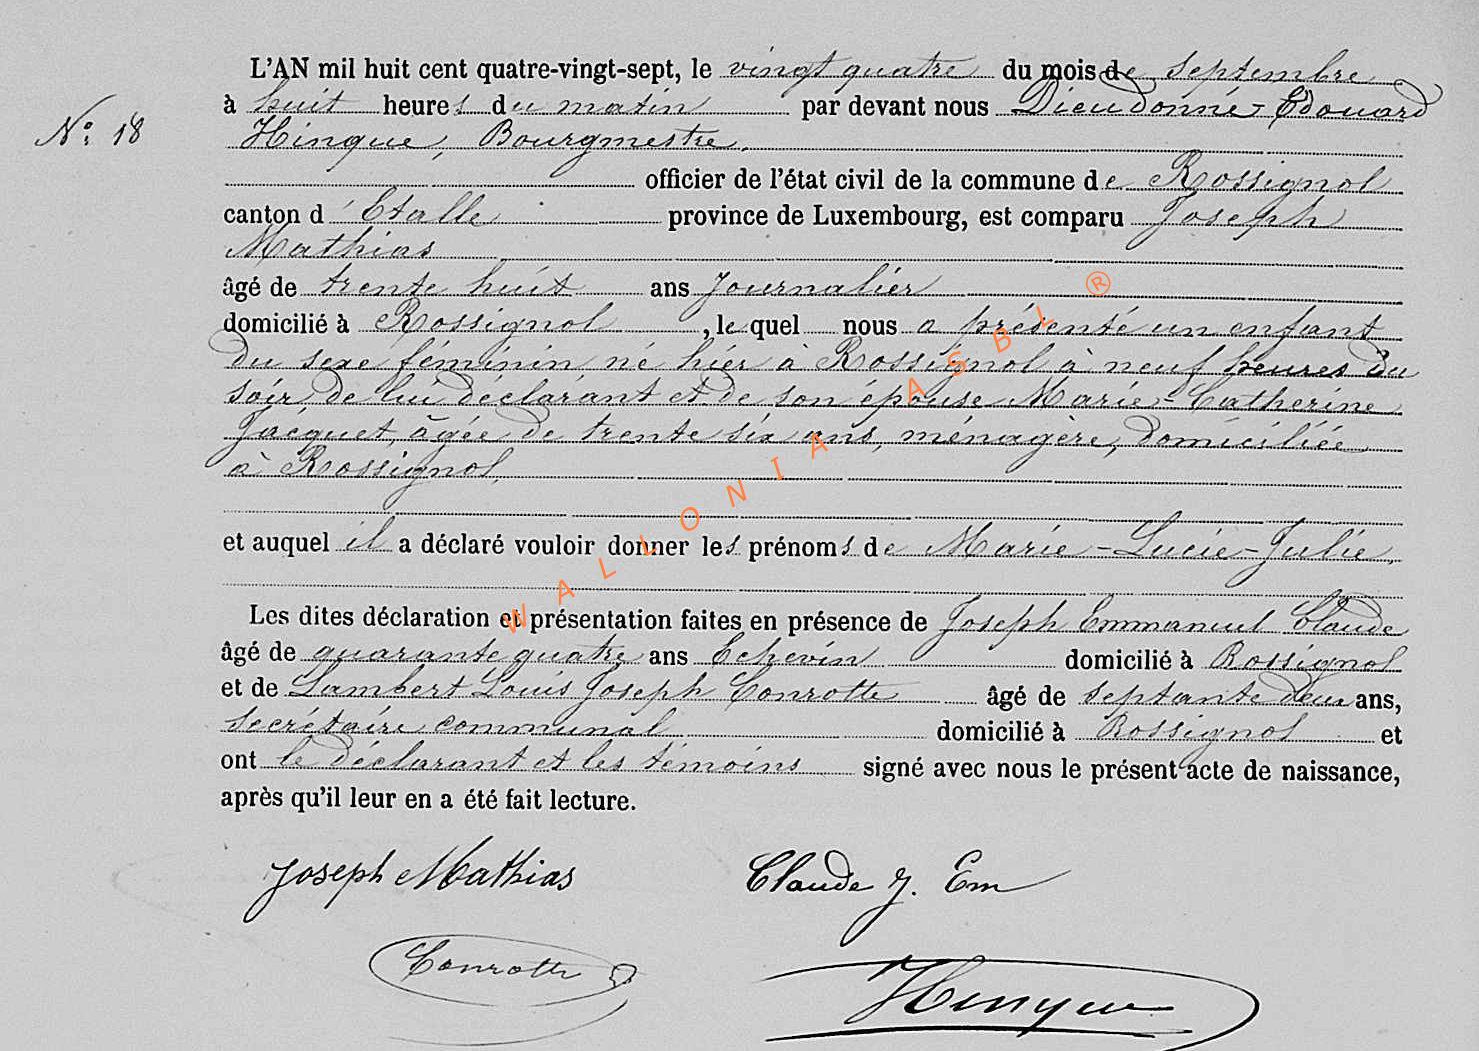 L'AN mil huit cent quatre-vingt-sept, le vingt quatre du mois de septembre
à huit heures du matin par devant nous Dieudonné Edouard
N° 18
Hinque, Bourgmestre,
officier de l'état civil de la commune de Rossignol
canton d'Etalle province de Luxembourg, est comparu Joseph
Mathias
âgé de trente huit ans Journalier
domicilié à Rossignol, le quel nous a présenté un enfant
du sexe féminin né hier à Rossignol à neuf heures du
soir, de lui déclarant et de son épouse Marie-Catherine
Jacquet, âgée de trente six ans, ménagère, domiciliée
à Rossignol,
et auquel il a déclaré vouloir donner les prénoms de Marie-Lucie-Julie,
Les dites déclaration et présentation faites en présence de Joseph Emmanuel Claude
âgé de quarante quatre ans Echevin domicilié à Rossignol
et de Lambert Louis Joseph Conrotte âgé de septante deux ans,
secrétaire communal domicilié à Rossignol et
ont le déclarant et les témoins signé avec nous le présent acte de naissance,
après qu'il leur en a été fait lecture.
Joseph Mathias Claude J. Em
Conrotte
Hinque
WALLONIA ASBL ®